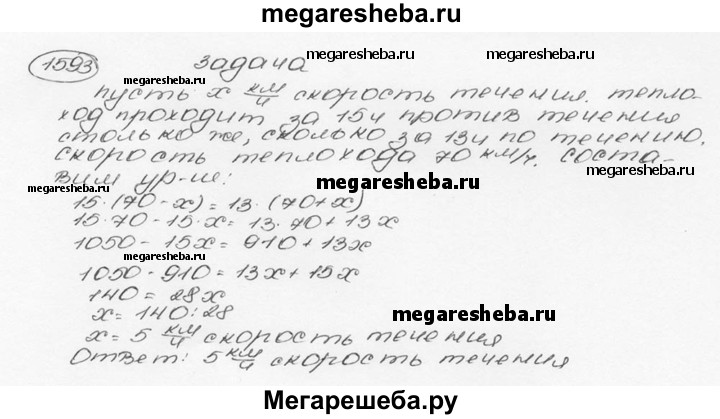 megaresheba.ru
1593 задача
megaresheba.ru megaresheba.ru megaresheba.ru
пусть х км/ч скорость течения. тепло-
ход проходит за 15ч против течения
столько же, сколько за 13ч по течению.
скорость теплохода 70 км/ч. соста-
megaresheba.ru megaresheba.ru megaresheba.ru
вим ур-ие:
15·(70-х)=13·(70+х)
15·70-15·х=13·70+13х
1050-15х=910+13х
1050-910=13х+15х
140=28х
х=140:28
megaresheba.ru
х=5 км/ч скорость течения
Ответ: 5 км/ч скорость течения
Мегарешеба.ру